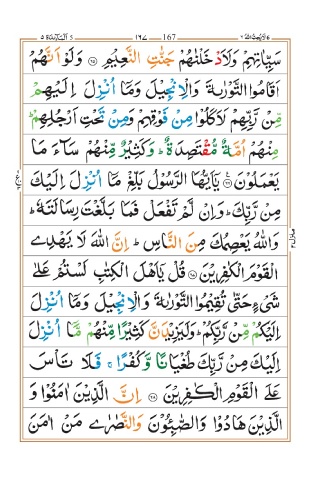 167 ١٦٧
سَيِّاٰتِهِمْ وَلَاَدْخَلْنٰهُمْ جَنّٰتِ النَّعِيْمِ ۝۶۵ وَلَوْ اَنَّهُمْ
اَقَامُوا التَّوْرٰىةَ وَالْاِنْجِيْلَ وَمَاۤ اُنْزِلَ اِلَيْهِمْ
مِّنْ رَّبِّهِمْ لَاَكَلُوْا مِنْ فَوْقِهِمْ وَمِنْ تَحْتِ اَرْجُلِهِمْ ؕ
مِنْهُمْ اُمَّةٌ مُّقْتَصِدَةٌ ؕ وَكَثِيْرٌ مِّنْهُمْ سَآءَ مَا
يَعْمَلُوْنَ ۝۶۶ يٰۤاَيُّهَا الرَّسُوْلُ بَلِّغْ مَاۤ اُنْزِلَ اِلَيْكَ
مِنْ رَّبِّكَ ؕ وَاِنْ لَّمْ تَفْعَلْ فَمَا بَلَّغْتَ رِسَالَتَهٗ ؕ
وَاللّٰهُ يَعْصِمُكَ مِنَ النَّاسِ ؕ اِنَّ اللّٰهَ لَا يَهْدِى
الْقَوْمَ الْكٰفِرِيْنَ ۝۶۷ قُلْ يٰۤاَهْلَ الْكِتٰبِ لَسْتُمْ عَلٰى
شَىْءٍ حَتّٰى تُقِيْمُوا التَّوْرٰىةَ وَالْاِنْجِيْلَ وَمَاۤ اُنْزِلَ
اِلَيْكُمْ مِّنْ رَّبِّكُمْ ؕ وَلَيَزِيْدَنَّ كَثِيْرًا مِّنْهُمْ مَّاۤ اُنْزِلَ
اِلَيْكَ مِنْ رَّبِّكَ طُغْيَانًا وَّكُفْرًا ۚ فَلَا تَاْسَ
عَلَى الْقَوْمِ الْكٰفِرِيْنَ ۝۶۸ اِنَّ الَّذِيْنَ اٰمَنُوْا وَ
الَّذِيْنَ هَادُوْا وَالصّٰبِـُٔوْنَ وَالنَّصٰرٰى مَنْ اٰمَنَ